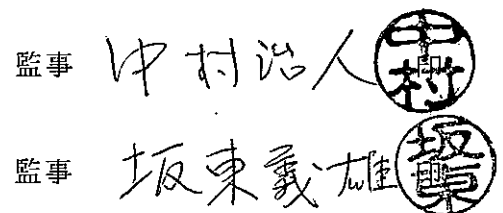 監事 中村治人 中村
監事 坂東義雄 坂東